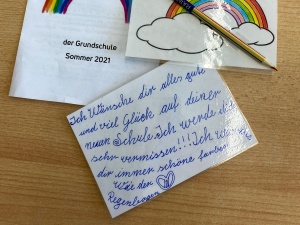 der Grundschule
Sommer 2021
Ich Wünsche dir alles gute
und viel Glück auf deiner
neuen Schule Ich werde dich
sehr vermissen!!! Ich
dir immer schöne farben
Wie der
Regenbogen